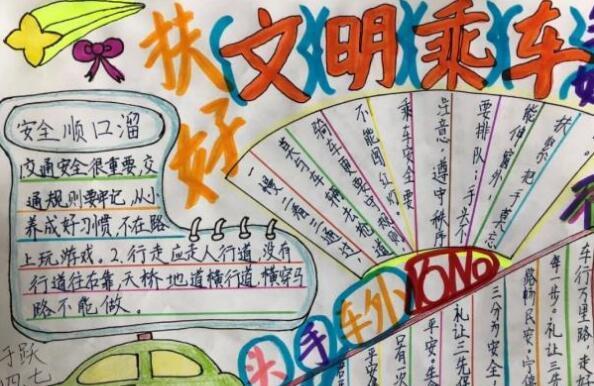 扶好
文明乘车
安全顺口溜
交通安全很重要,交
通规则要牢记,从小
养成好习惯,不在路
上玩游戏。2.行走应走人行道,没有
行道往右靠,天桥地道横行道,横穿马
路不能做。
一慢二看三通过,
莫与车辆去抢道
骑车更要守规则
不能闯红灯。
乘车安全要
注意:遵守秩序
要排队;手头不
能伸窗外,
扶紧把手莫
头手车外
NoNo
平安
三分为安全,
礼让三先保
车行万里路,走好
每一步。礼让三
路畅民安。宁
于跃
四七